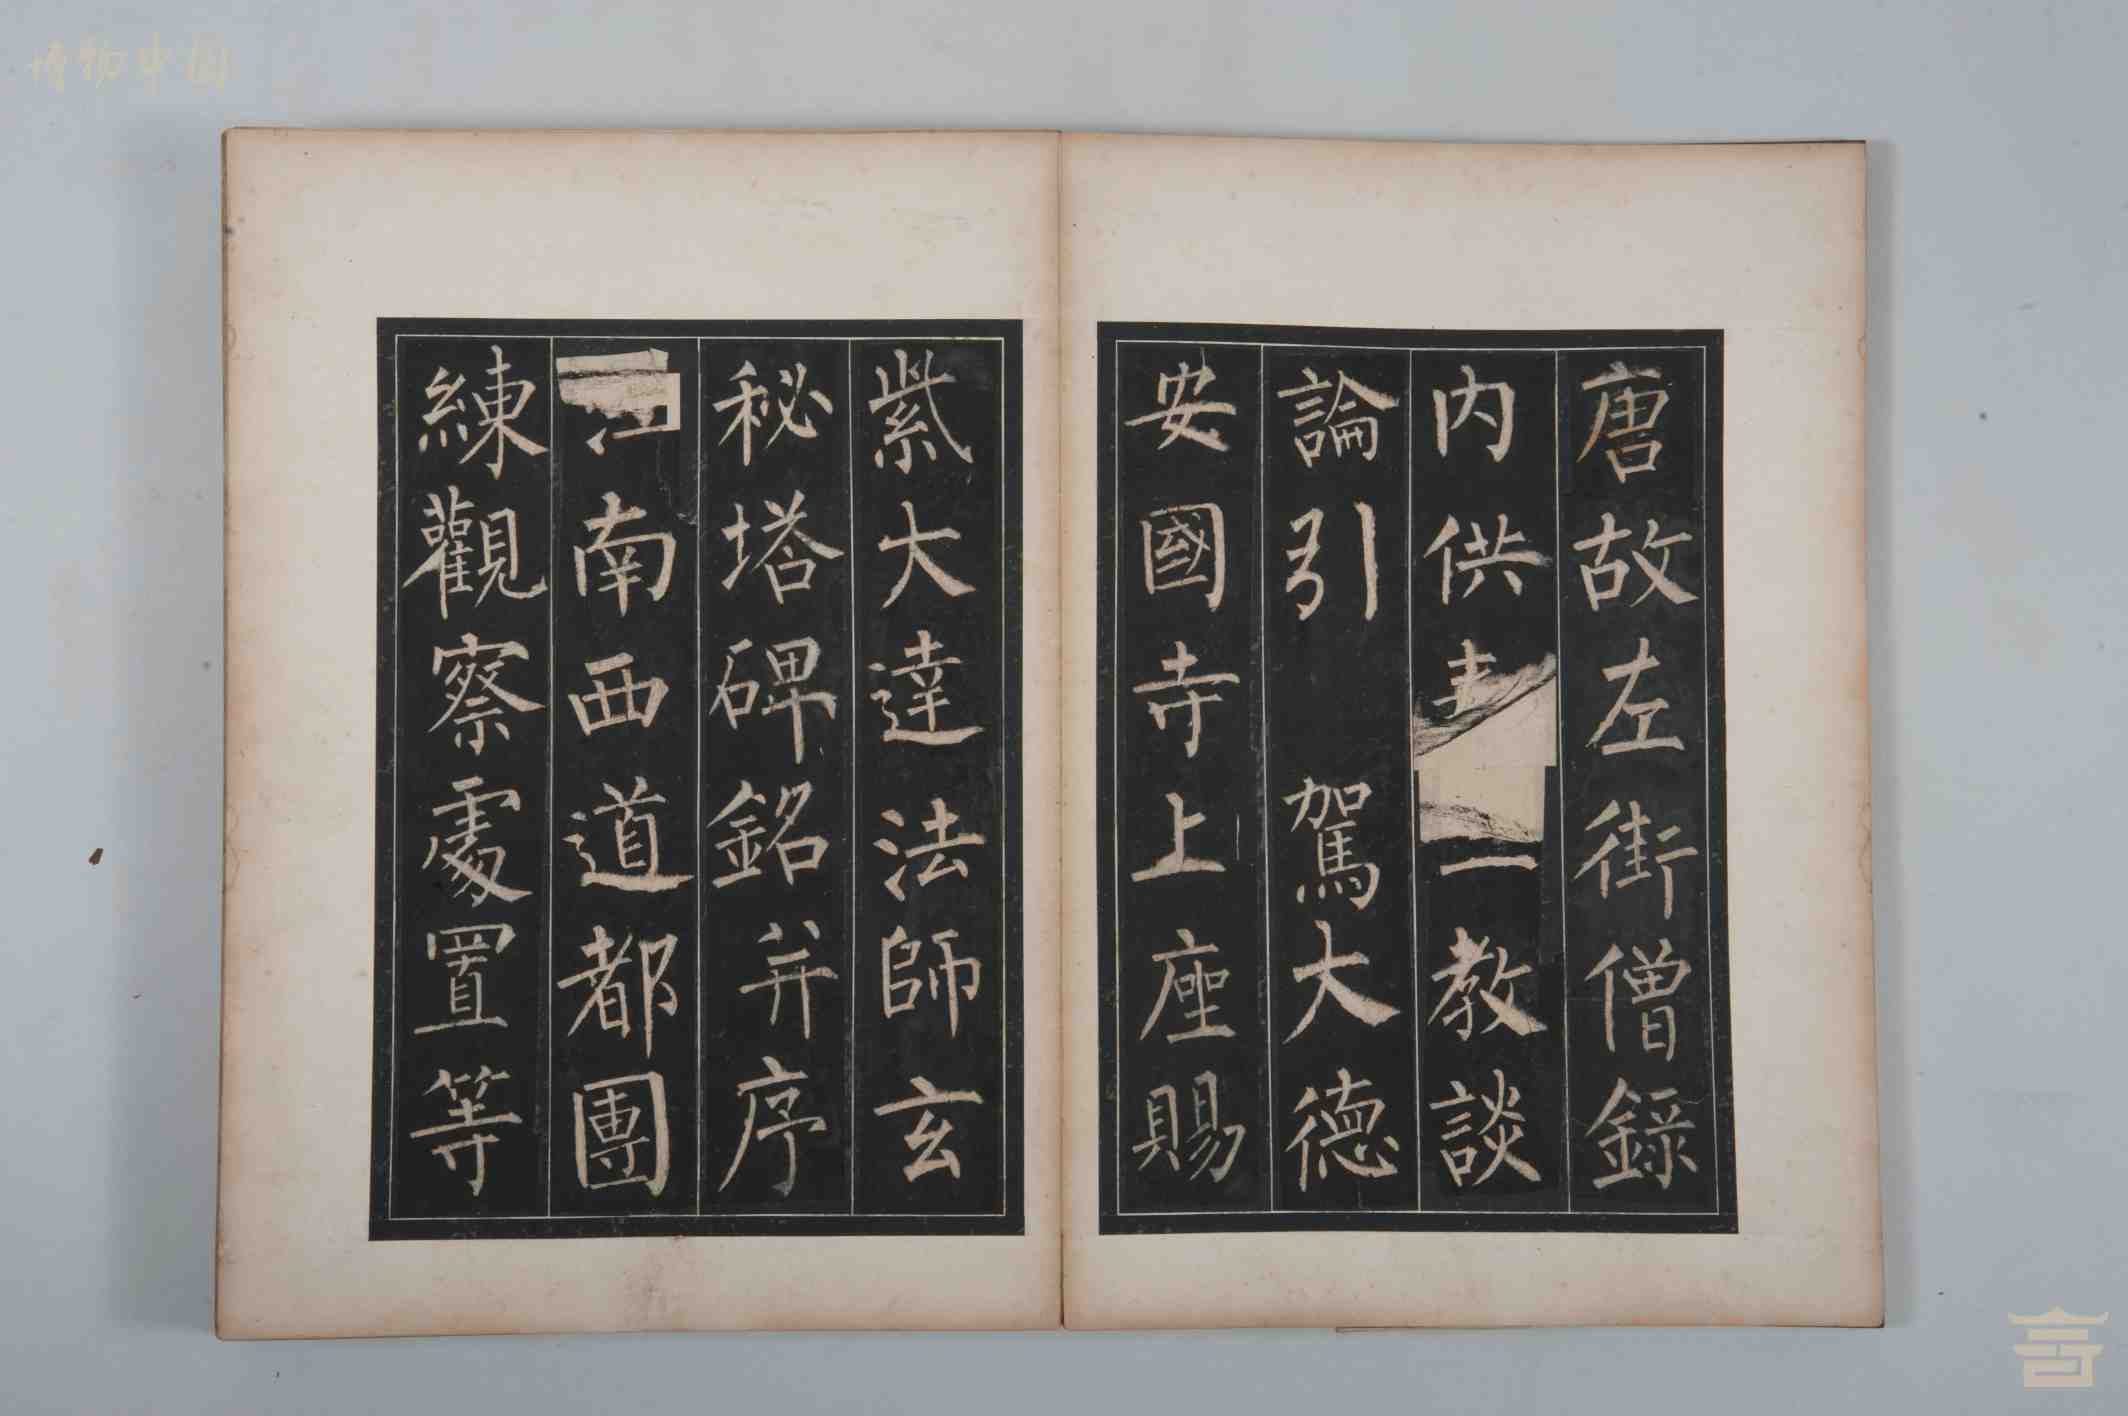 唐故左街僧錄
內供一教談
論引 駕大德
安國寺上座賜
紫大達法師玄
秘塔碑銘并序
江南西道都團
練觀察處置等
博物中国